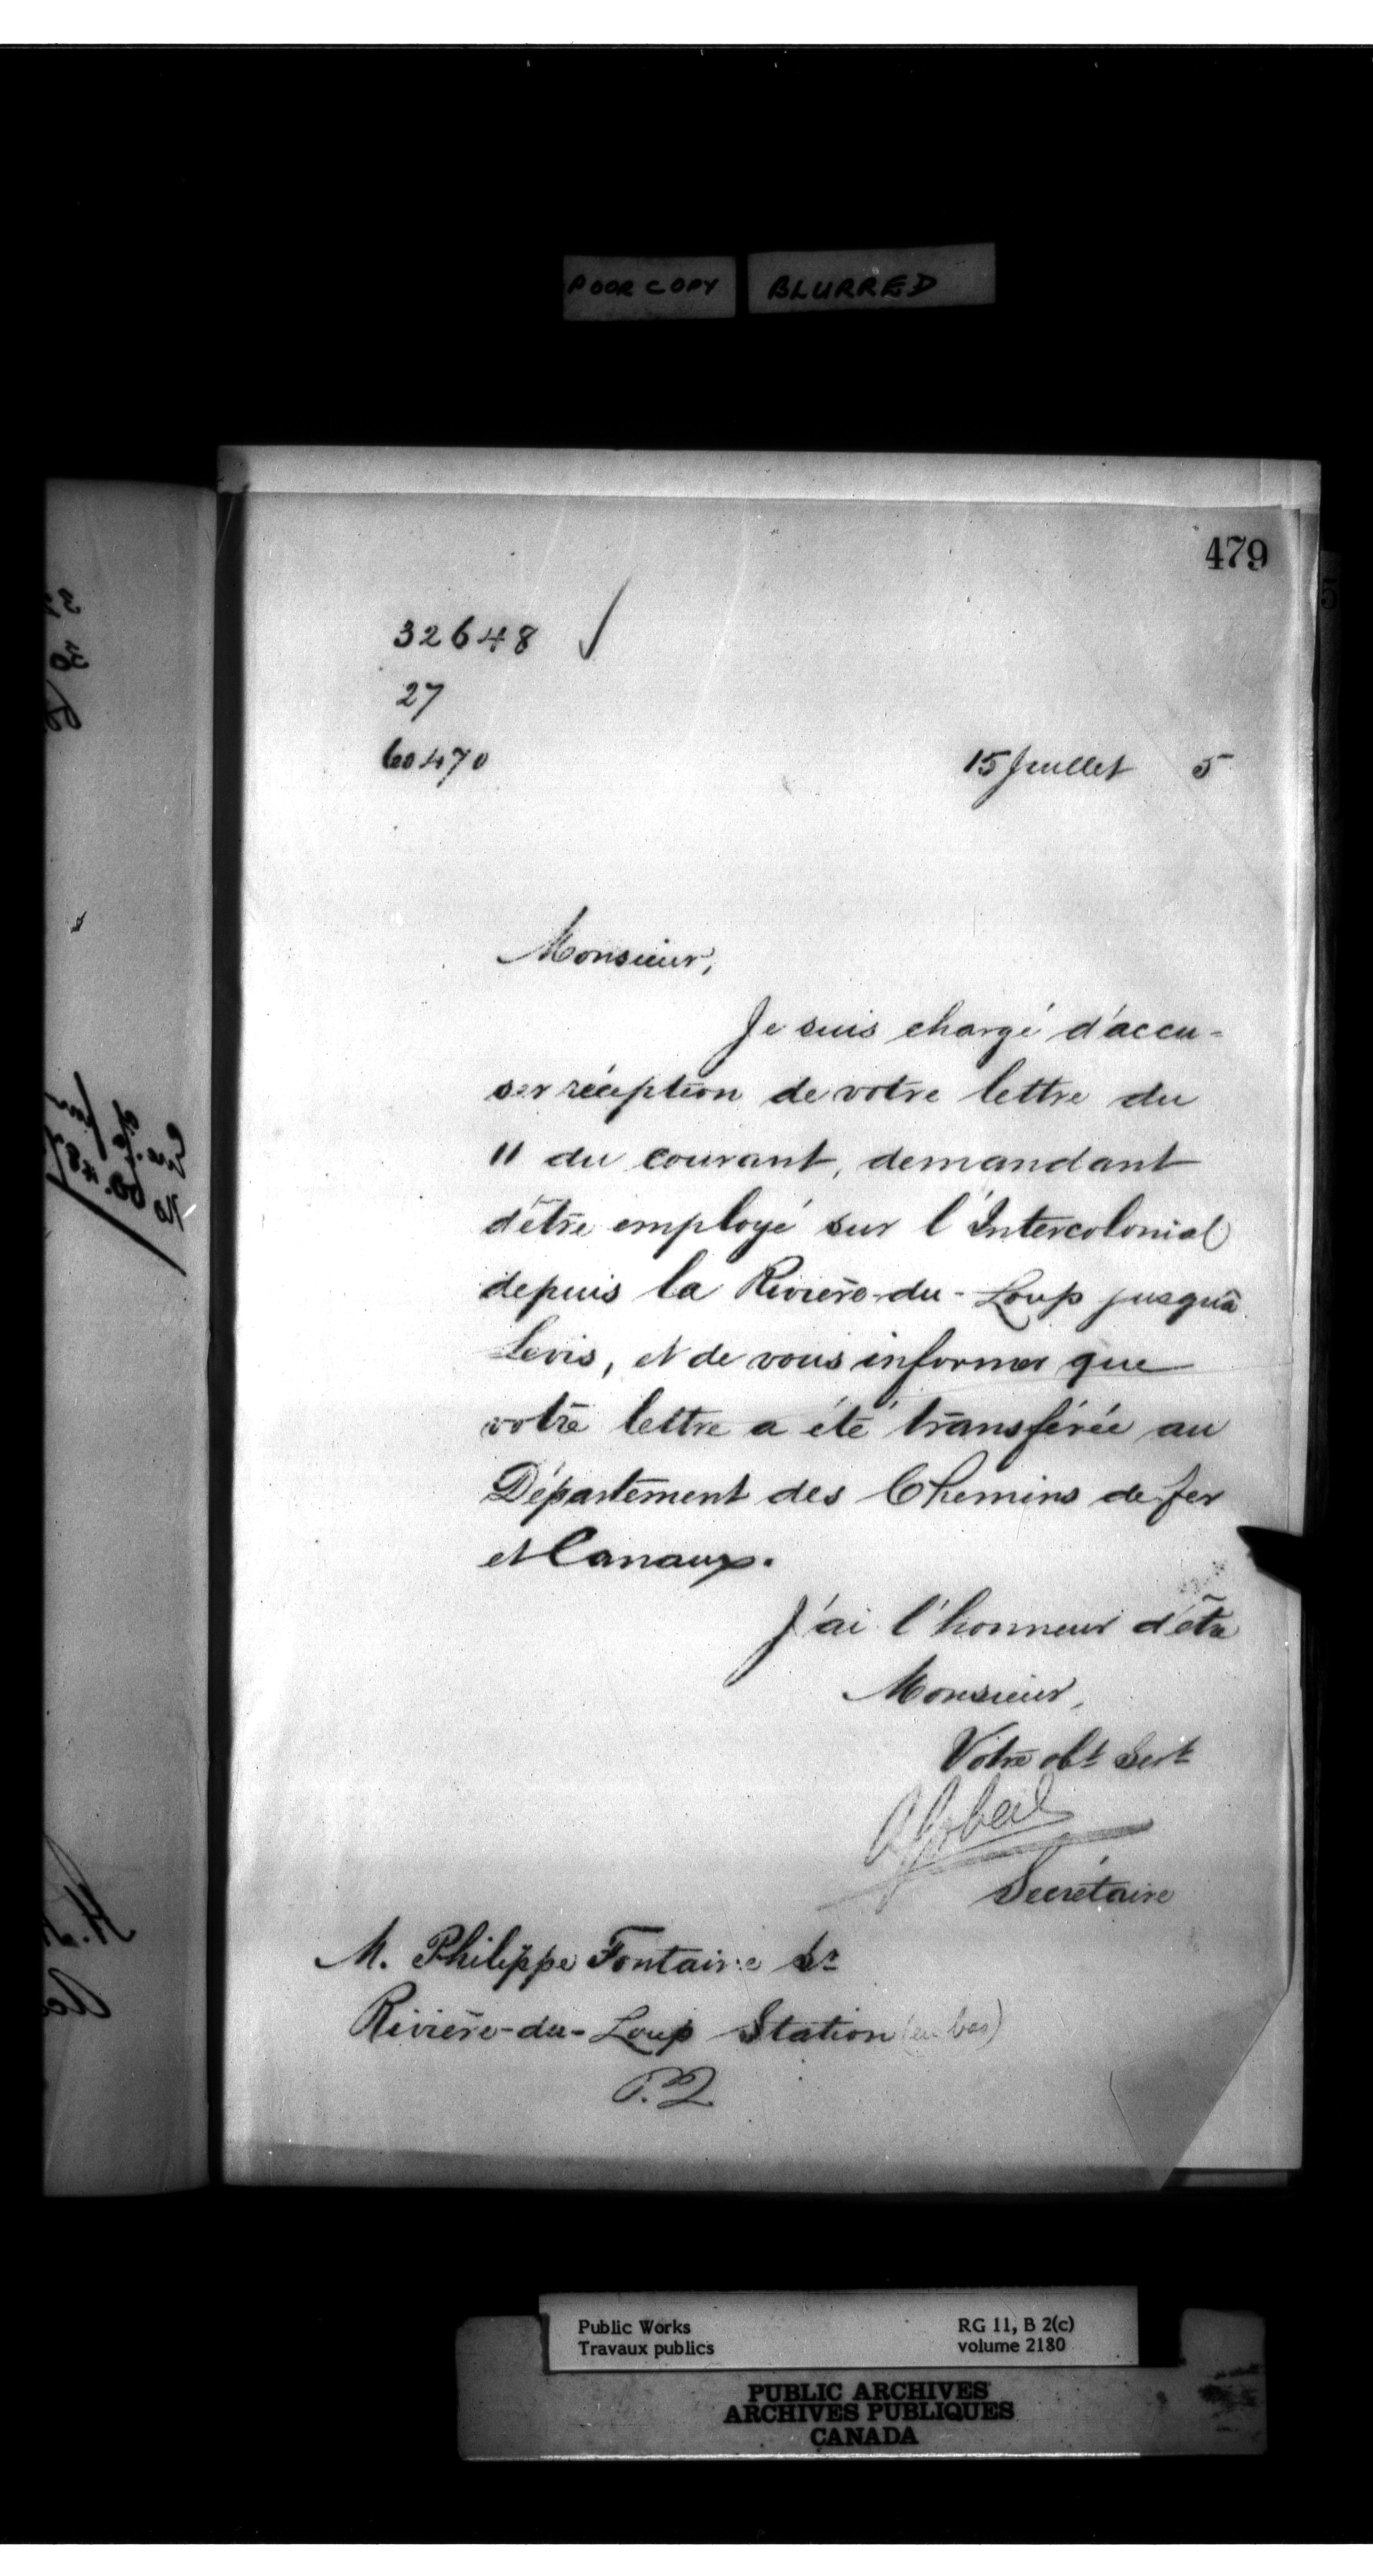 POOR COPY BLURRED
479
32648 ✓
27
60470
15 Juillet 5
Monsieur,
Je suis chargé d'accu=
ser réception de votre lettre du
11 du courant, demandant
d'être employé sur l'Intercolonial
depuis la Rivière-du-Loup jusqu'à
Levis, et de vous informer que
votre lettre a été transférée au
Département des Chemins de fer
et Canaux.
J'ai l'honneur d'être
Monsieur,
Votre obt Sert
A Gobeil
Secrétaire
M. Philippe Fontaine Sr
Rivière-du-Loup Station (en bas)
P.Q
Public Works
Travaux publics
RG 11, B 2(c)
volume 2180
PUBLIC ARCHIVES
ARCHIVES PUBLIQUES
CANADA